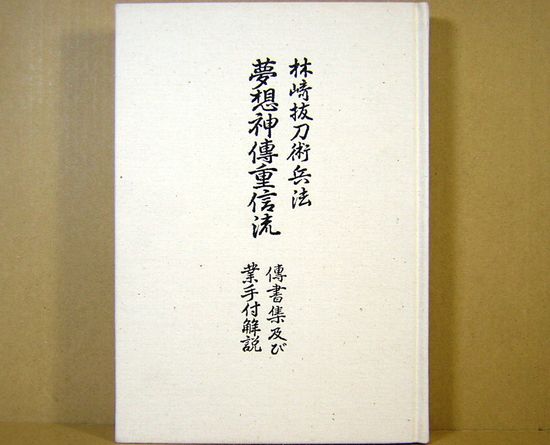 林﨑抜刀術兵法
夢想神傳重信流
傳書集及び
業手付解説